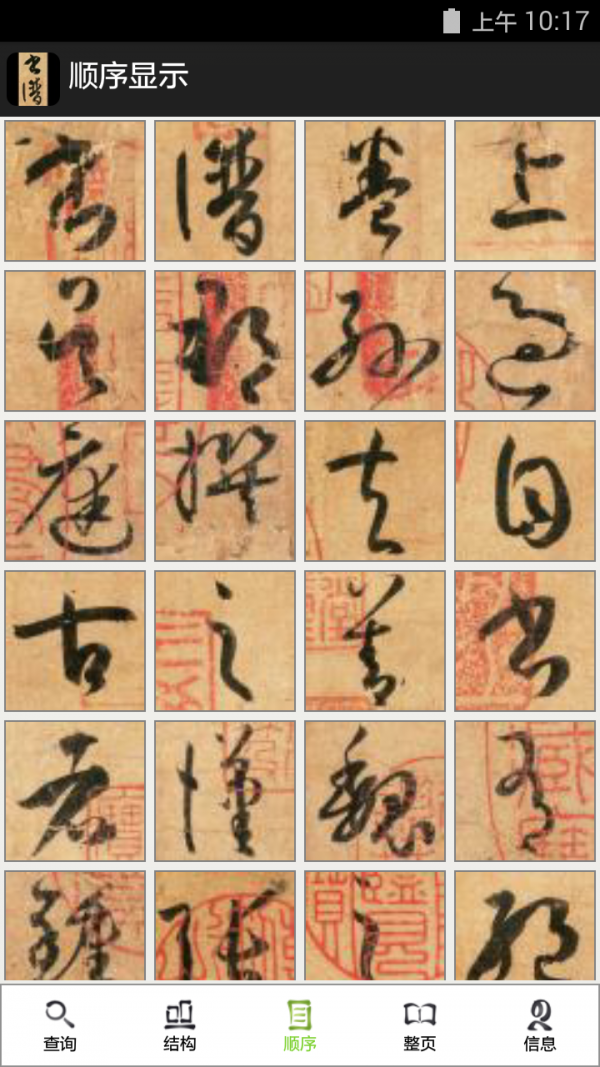 上午 10:17
書譜
顺序显示
書 譜 卷 上
吳 郡 孫 過
庭 撰 夫 自
古 之 善 書
者 漢 魏 有
鍾 張 之 絕
查询 结构 顺序 整页 信息